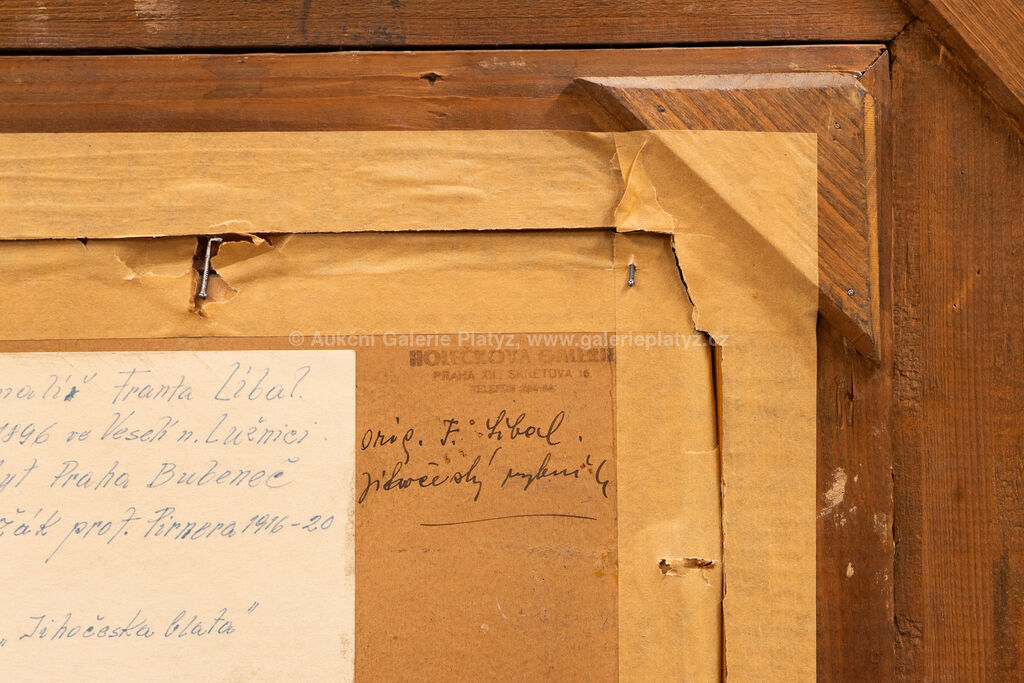 © Aukční Galerie Platýz, www.galerieplatyz.cz
HOLEČKOVA GALERIE
PRAHA XII., ŠKRÉTOVA 16.
TELEFON
malíř Franta Líbal.
1896 ve Veselí n. Lužnici.
byt Praha Bubeneč
žák prof. Pirnera 1916-20
„Jihočeská blata"
orig. F. Líbal.
Jihočeský rybník